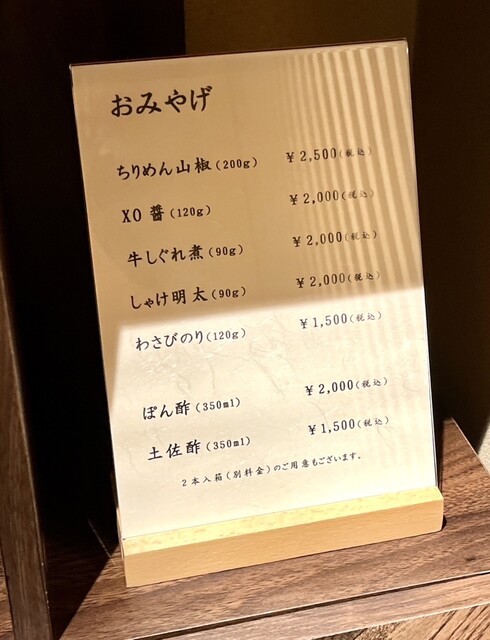 おみやげ
ちりめん山椒(200g) ¥2,500(税込)
XO醤(120g) ¥2,000(税込)
牛しぐれ煮(90g) ¥2,000(税込)
しゃけ明太(90g) ¥2,000(税込)
わさびのり(120g) ¥1,500(税込)
ぽん酢(350ml) ¥2,000(税込)
土佐酢(350ml) ¥1,500(税込)
2本入箱(別料金)のご用意もございます。